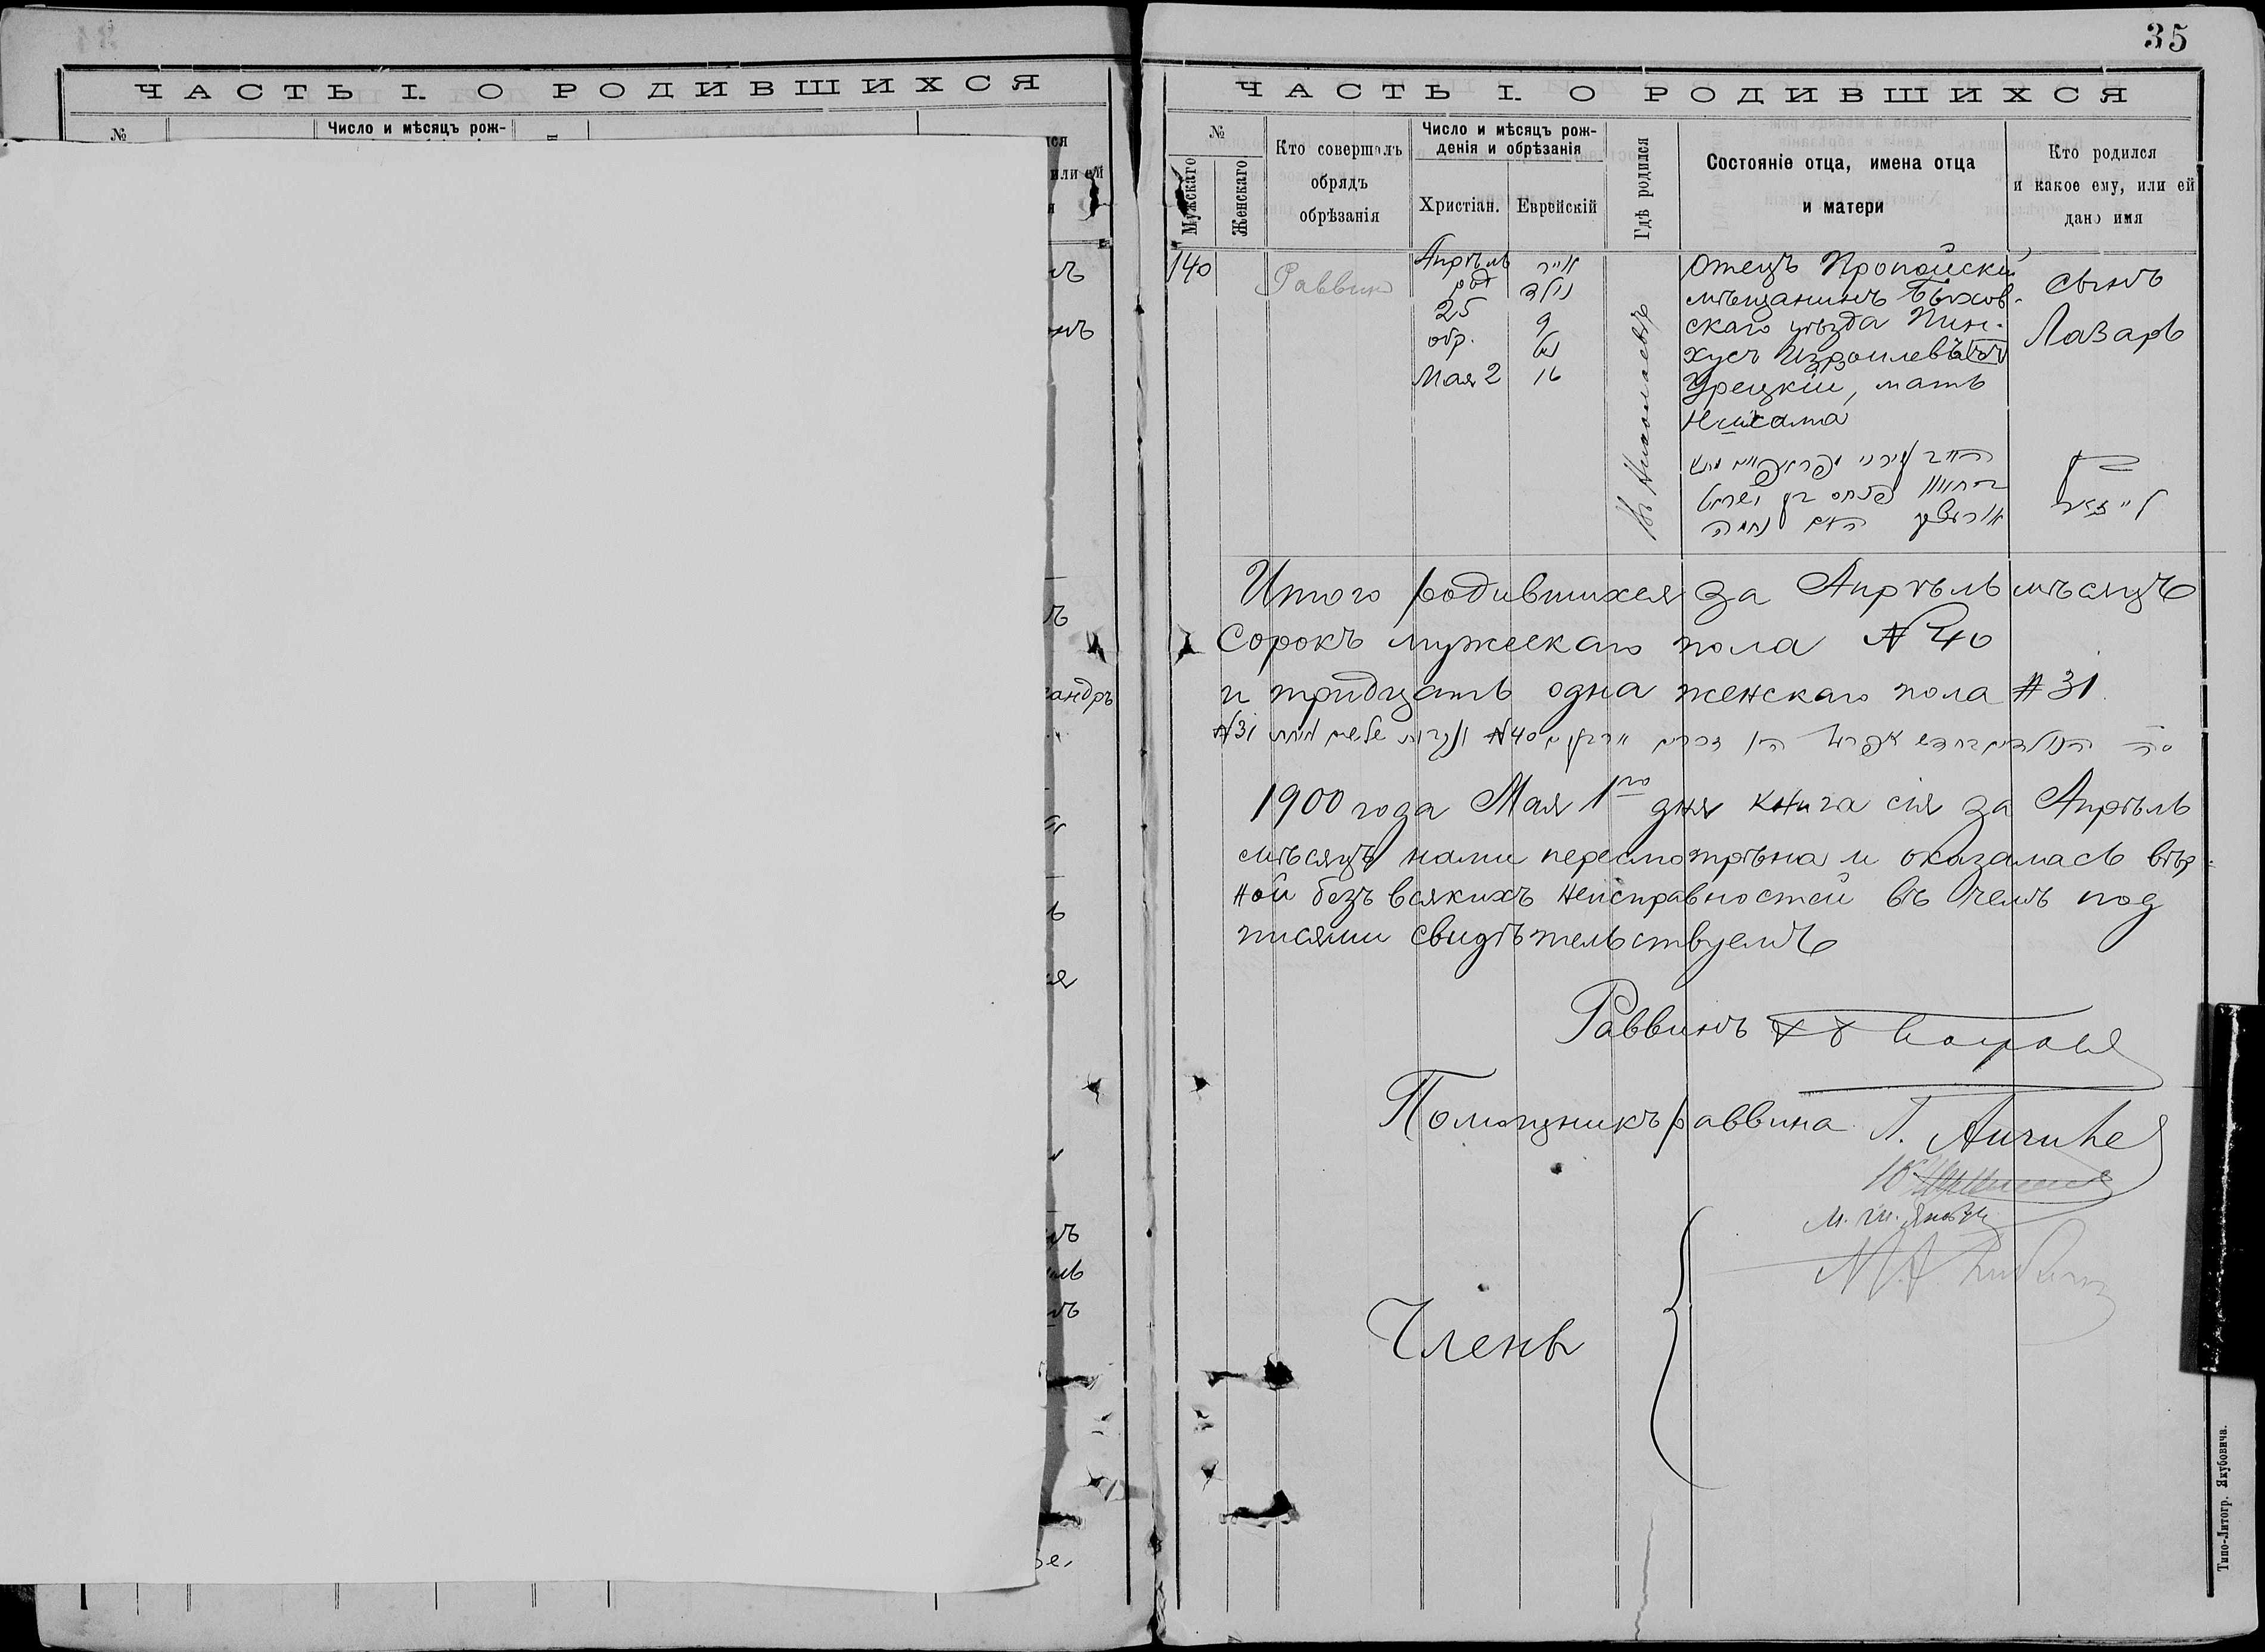 ЧАСТЬ I. О РОДИВШИХСЯ
№
Число и мѣсяцъ рож-
или ей
андръ
35
ЧАСТЬ I. О РОДИВШИХСЯ
№
Мужскаго
Женскаго
Кто совершалъ
обрядъ
обрѣзанія
Число и мѣсяцъ рож-
денія и обрѣзанія
Христіан.
Еврейскій
Гдѣ родился
Состояніе отца, имена отца
и матери
Кто родился
и какое ему, или ей
дано имя
140
Раввинъ
Апрѣль
25
обр.
Мая 2
אייר
נולד
9
16
въ Николаевѣ
Отецъ Пропойскій
мѣщанинъ Быхов-
скаго уѣзда Пин-
хусъ Израилевъ
Урецкій, мать
Нихама
сынъ
Лазарь
בן
Итого родившихся за Апрѣль мѣсяцъ
Сорокъ мужескаго пола № 40
и тридцать одна женскаго пола # 31
1900 года Мая 1го дня книга сія за Апрѣль
мѣсяцъ нами пересмотрѣна и оказалась вѣр-
ной безъ всякихъ неисправностей въ чемъ под
писями свидѣтельствуемъ
Раввинъ
Помощникъ раввина
Члены
Типо-Литогр. Якубовича.